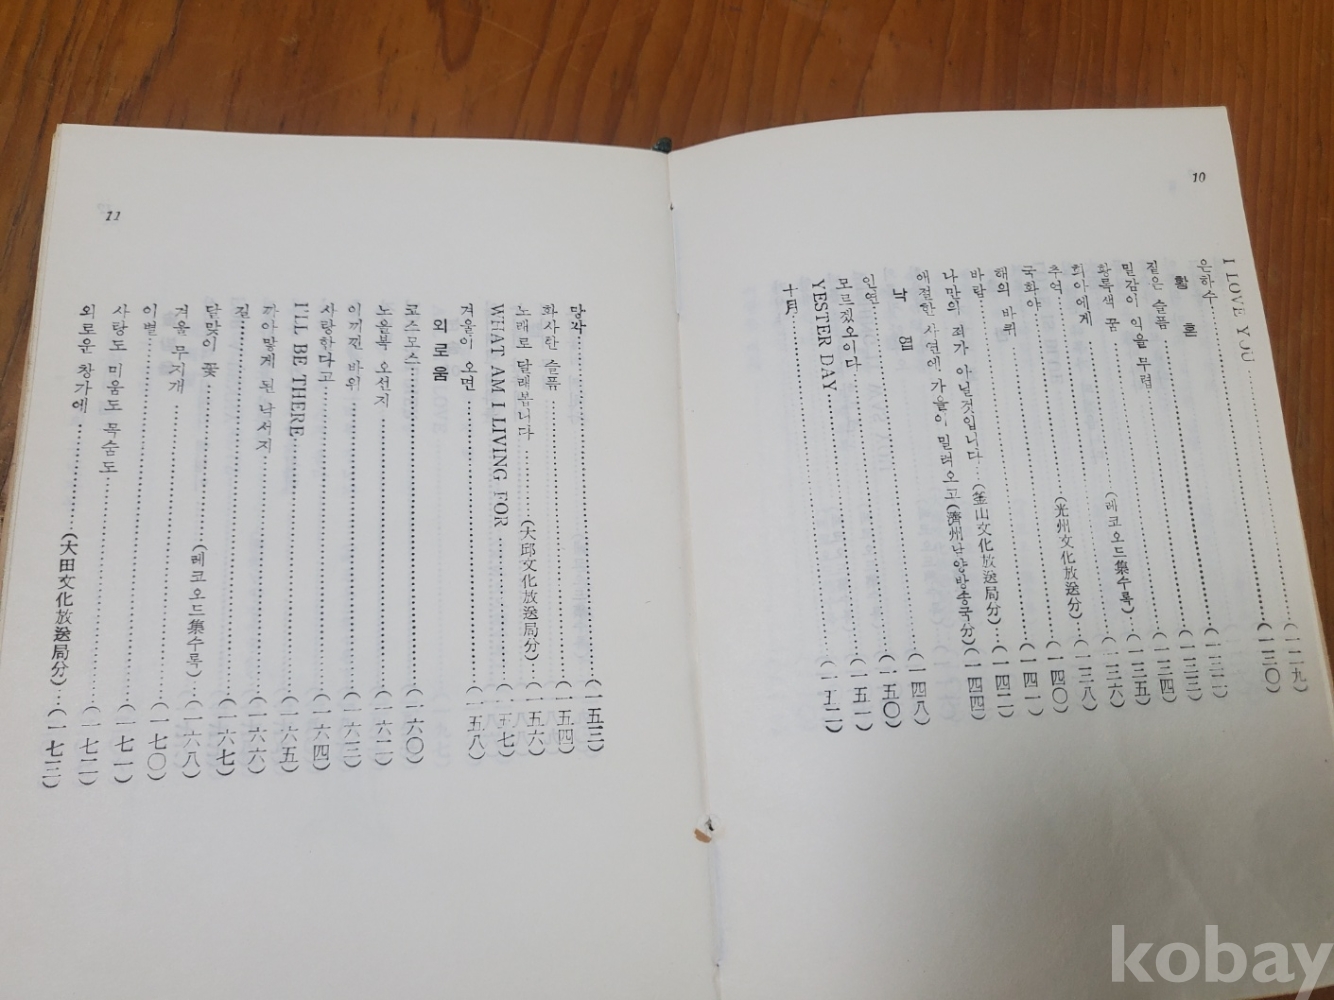 10
I LOVE YOU (一二九)
은하수 (一三〇)
황 혼
짙은 슬픔 (一三二)
밀감이 익을 무렵 (一三三)
황록색 꿈 (一三四)
희아에게 (레코오드集수록) (一三五)
추억 (一三六)
국화야 (光州文化放送分) (一三八)
해의 바퀴 (一四〇)
바람 (一四一)
나만의 죄가 아닐것입니다 (釜山文化放送局分) (一四二)
애절한 사연에 가을이 밀려오고 (濟州남양방송국分) (一四四)
낙 엽
인연 (一四八)
모르겠오이다 (一五〇)
YESTER DAY (一五一)
十月 (一五二)
11
망각 (一五三)
화사한 슬픔 (一五四)
노래로 달래봅니다 (大邱文化放送局分) (一五六)
WHAT AM I LIVING FOR (一五七)
겨울이 오면 (一五八)
외로움
코스모스 (一六〇)
노을복 오선지 (一六二)
이끼낀 바위 (一六三)
사랑한다고 (一六四)
I'LL BE THERE (一六五)
까아맣게 된 낙서지 (一六六)
길 (一六七)
달맞이 꽃 (레코오드集수록) (一六八)
겨울 무지개 (一七〇)
이별 (一七一)
사랑도 미움도 목숨도 (一七二)
외로운 창가에 (大田文化放送局分) (一七三)
kobay